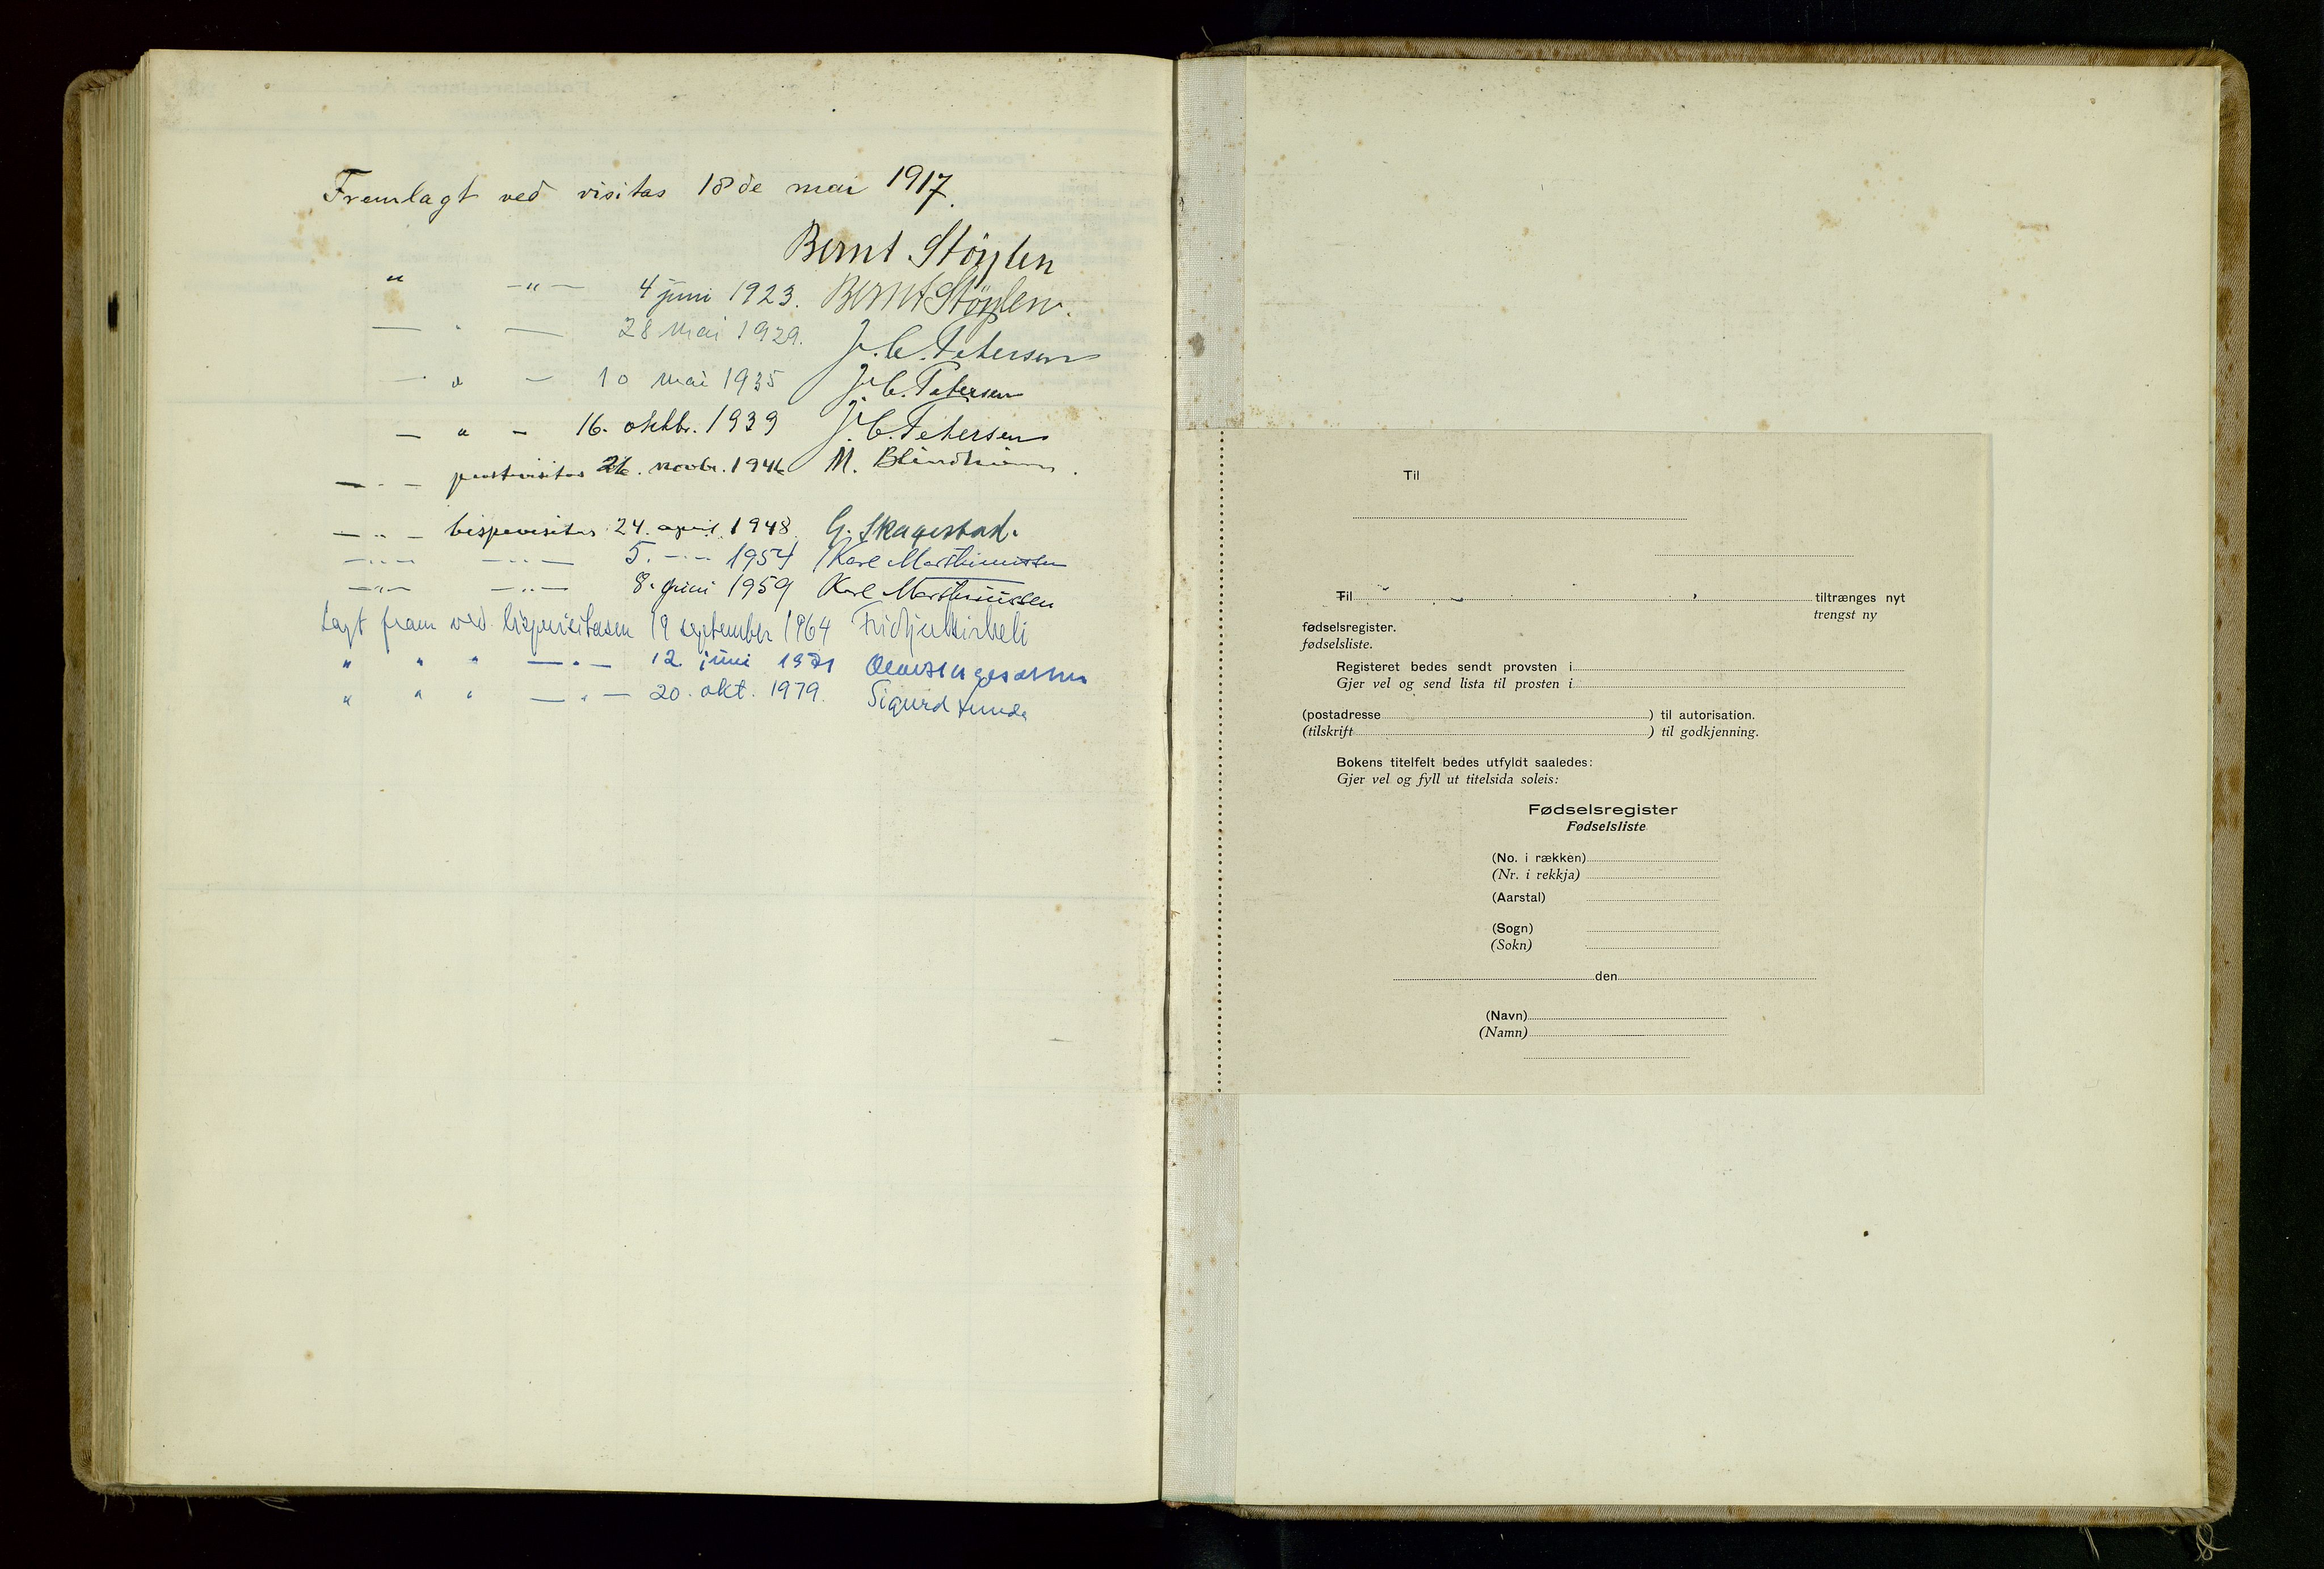 Fremlagt ved visitas 18de mai 1917.
Bernt Støylen
" —"— 4 juni 1923. Bernt Støylen.
— " — 28 mai 1929. J. C. Petersen
— " — 10 mai 1935 J. C. Petersen
— " — 16. oktbr. 1939 J. C. Petersen
— " — prostevisitas 26. novbr. 1946 M. Blindheim.
— " — bispevisitas 24. april 1948. G. Skagestad.
—"— —"— 5. —"— 1954 Kare Marthinussen
—"— —"— 8. juni 1959 Kare Marthinussen
Lagt fram ved bispevisitasen 19 september 1964
" " " —"— 12. juni 1971
" " " —"— 20. okt. 1979. Sigurd Lunde
Til
Til tiltrænges nyt
trengst ny
fødselsregister.
fødselsliste.
Registeret bedes sendt provsten i
Gjer vel og send lista til prosten i
(postadresse ) til autorisation.
(tilskrift ) til godkjenning.
Bokens titelfelt bedes utfyldt saaledes:
Gjer vel og fyll ut titelsida soleis:
Fødselsregister
Fødselsliste
(No. i rækken)
(Nr. i rekkja)
(Aarstal)
(Sogn)
(Sokn)
den
(Navn)
(Namn)